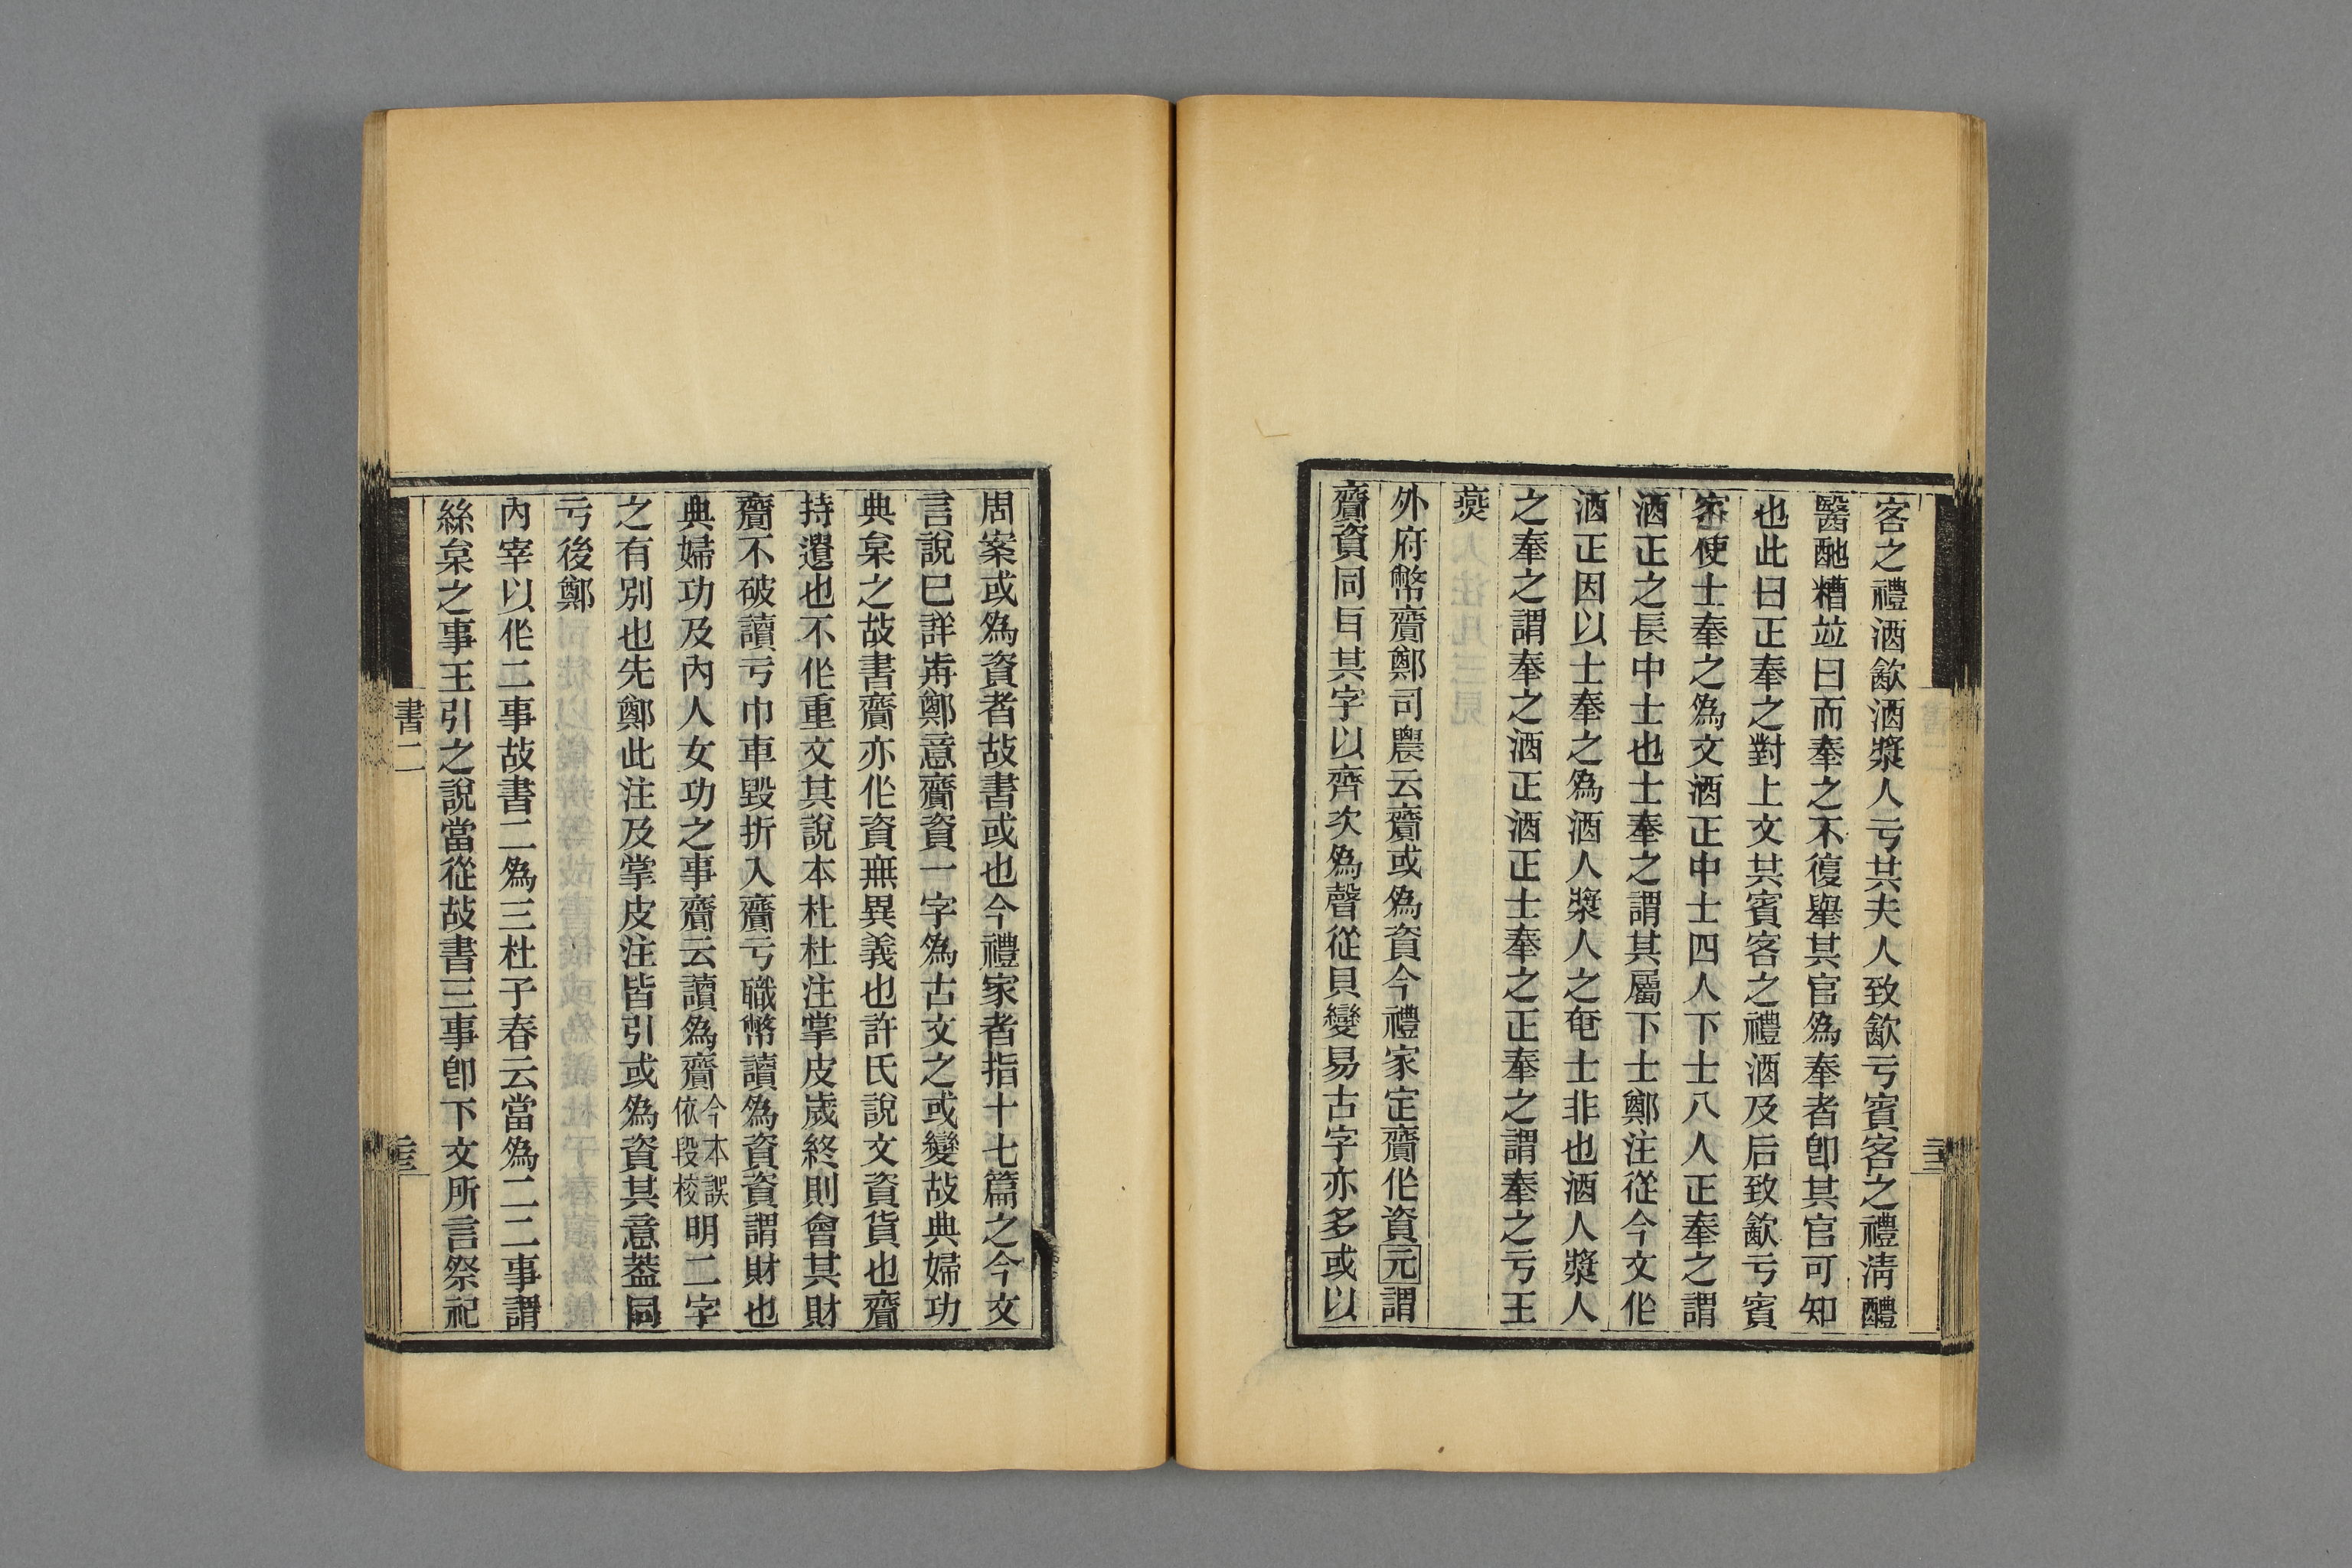 客之禮酒歠酒漿人亏共夫人致歠亏賓客之禮淸醴
醫酏糟竝曰而奉之不復舉其官爲奉者卽其官可知
也此曰正奉之對上文共賓客之禮酒及后致歠亏賓
客使士奉之爲文酒正中士四人下士八人正奉之謂
酒正之長中士也士奉之謂其屬下士鄭注從今文作
酒正因以士奉之爲酒人漿人之奄士非也酒人漿人
之奉之謂奉之酒正酒正士奉之正奉之謂奉之亏王
燕
外府幣齎鄭司農云齎或爲資今禮家定齎作資元謂
齎資同耳其字以齊次爲聲從貝變易古字亦多或以
周案或爲資者故書或也今禮家者指十七篇之今文
言說已詳歬鄭意齎資一字爲古文之或變故典婦功
典枲之故書齎亦作資無異義也許氏說文資貨也齎
持遺也不作重文其說本杜杜注掌皮歲終則會其財
齎不破讀亏巾車毀折入齎亏職幣讀爲資資謂財也
典婦功及內人女功之事齎云讀爲齎今本誤依段校明二字
之有別也先鄭此注及掌皮注皆引或爲資其意蓋同
亏後鄭
內宰以作二事故書二爲三杜子春云當爲二二事謂
絲枲之事王引之說當從故書三事卽下文所言祭祀
書二